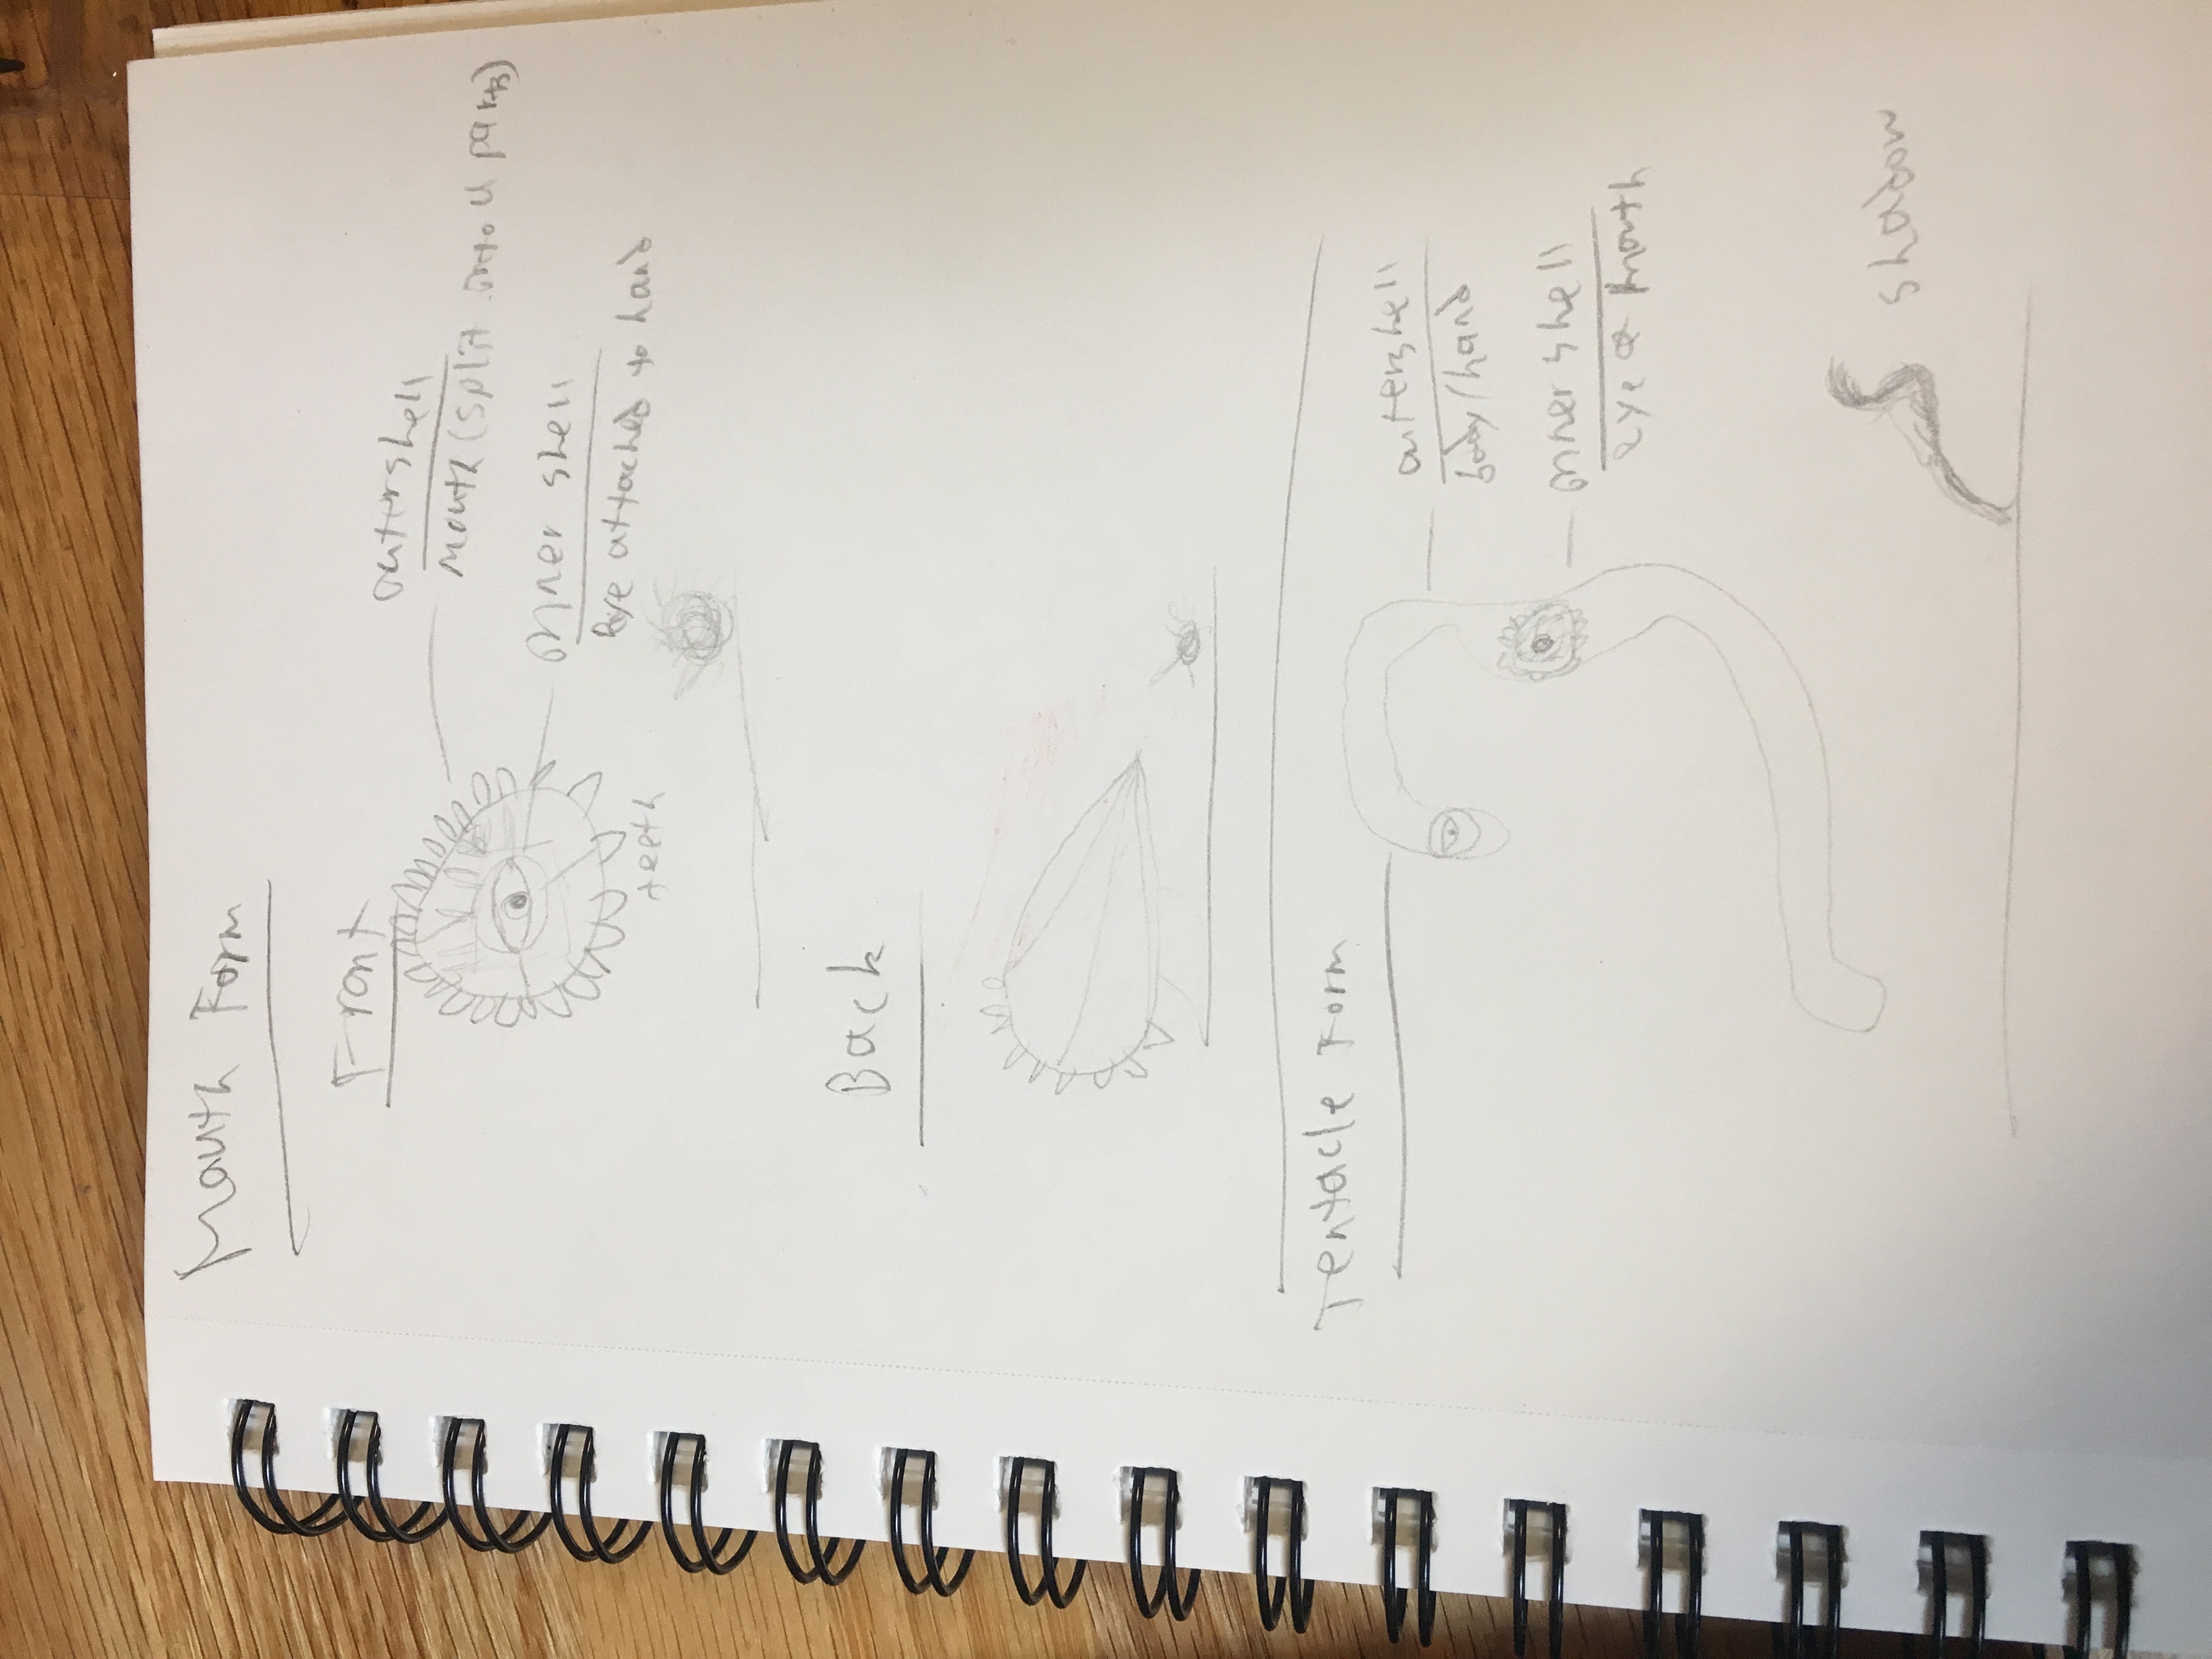 Mouth Form
Front
outershell
mouth (split into 4 parts)
inner shell
eye attached to hand
teeth
Back
Tentacle Form
outershell
body/hand
inner shell
eye & mouth
shadow